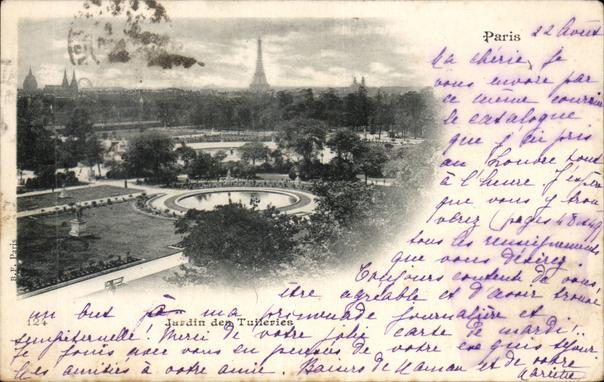 Paris
22 Août
Ma chérie, Je
vous envoie par
ce même courrier
le catalogue
que j'ai pris
au Louvre tout
à l'heure. J'espère
que vous y trou-
verez (pages 48 et 49)
tous les renseignements
que vous désirez.
Toujours contente de vous
être agréable et d'avoir trouvé
un but à ma promenade journalière et
sempiternelle! Merci de votre jolie carte de mardi!..
Je jouis avec vous en pensée de votre exquis séjour.
amitiés à votre amie. Baisers de Maman et de votre
Mariette
124 Jardin des Tuileries
B.F. Paris